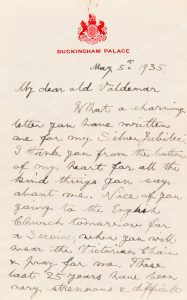 BUCKINGHAM PALACE
May 5th 1935
My dear old Valdemar
What a charming
letter you have written
me for my Silver Jubilee,
I thank you from the bottom
of my heart for all the
kind things you say
about me. Nice of you
going to the English
Church tomorrow for
a Service & when you will
wear the Victorian Chain
& pray for me. These
last 25 years have been
very strenuous & difficult